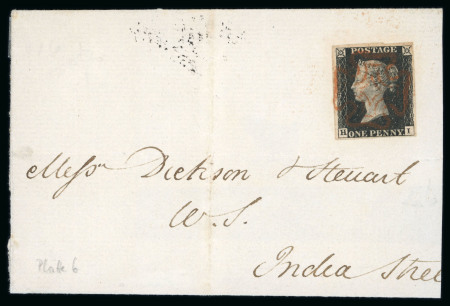 POSTAGE
H I
ONE PENNY
Messrs Dickson & Steuart
W.S.
India Stree
Plate 6